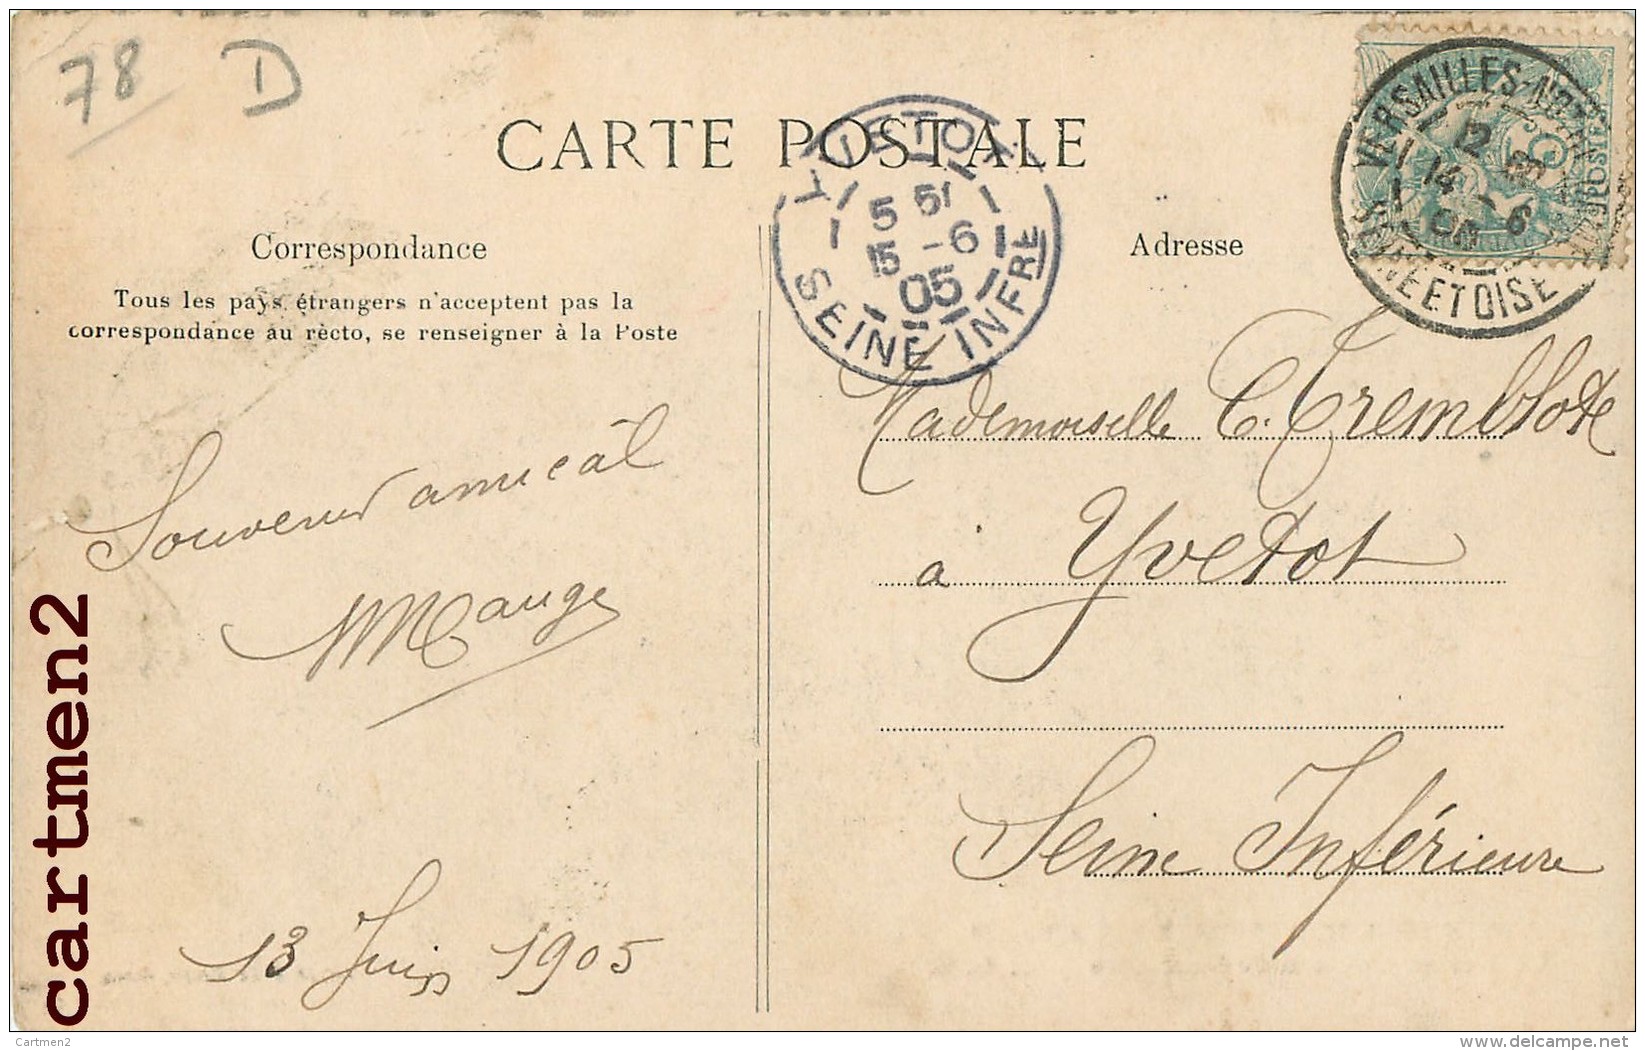 78 D
CARTE POSTALE
Correspondance
Tous les pays étrangers n'acceptent pas la
correspondance au recto, se renseigner à la Poste
Souvenir amical
Mauge
13 Juin 1905
YVETOT
5 51
15 -6
05
SEINE INFRE
Adresse
VERSAILLES
12
14 -6
SEINE ET OISE
5
POSTES
Mademoiselle C. Tremblote
à Yvetot
Seine Inférieure
cartmen2
Cartmen2
delcampe.net